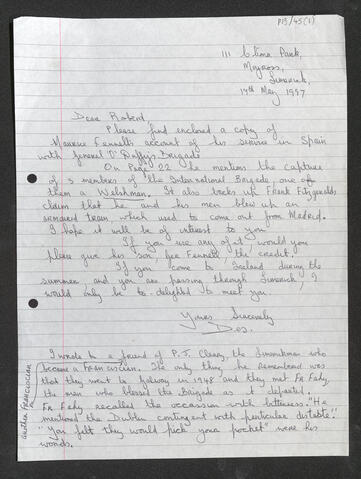 P13/45(1)
111 Cliona Park,
Moyross,
Limerick,
14th May 1997
Dear Robert,
Please find enclosed a copy of
Maurice Fennell's account of his service in Spain
with General O'Duffy's Brigade
On Page 22 he mentions the capture
of 3 members of the International Brigade one of
them a Welshman. It also backs up Frank Fitzgeralds
claim that he and his men blew up an
armoured train which used to come out from Madrid.
I hope it will be of interest to you.
If you use any of it would you
please give his son, Fennell the credit.
If you come to Ireland during the
summer and you are passing through Limerick, I
would only be to delighted to meet you.
Yours Sincerely
Des.
I wrote to a friend of P.J. Cleary, the Limerickman who
became a Franciscian. The only thing he remembered was
that they went to Galway in 1948 and they met Fr Fahy,
the man who blessed the Brigade as it departed.
Fr Fahy recalled the occassion with bitterness. "He
mentioned the Dublin contingent with particular distaste."
"You felt they would pick your pocket" were his
words.
another Franciscian